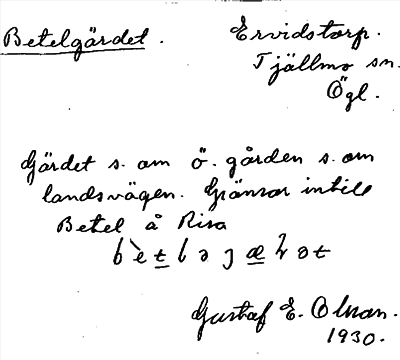 Betelgärdet.
Ervidstorp.
Tjällmo sn.
Ögl.
Gärdet s. om ö. gården s. om
landsvägen. Gränsar intill
Betel å Risa
Gustaf E. Olsson.
1930.